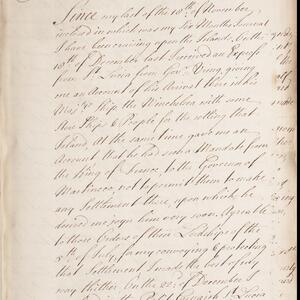 Since my last of the 18th of November,
inclosed in which was my Six Months Journal
I have been cruising upon the Island, On the
18th of December last I received an Express
from St. Lucia from Govr. Uring, giving
me an Account of his arrival there in his
Maj.s Ship the Winchelsea with some
Hus Ships & People for the settling that
Island. At the same time gave me an
Account that he had seen a Mandate from
the King of France, to the Governor of
Martineco, not to permit them to make
any Settlement there, upon which he
desired me joyn him very soon. Agreeable
to those Orders of their Lordships of the
5th of July, for my conveying & protecting
that Settlement I made the best of my
way thither. On the 22d of December I
in the St. Lucia